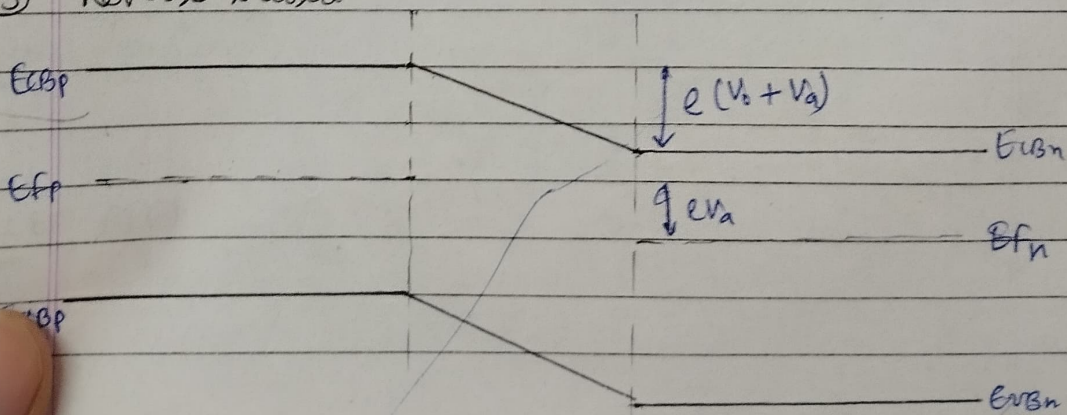 3)
ECBp
e (V₀ + Va)
ECBn
Efp
eva
Efn
Bp
EVBn